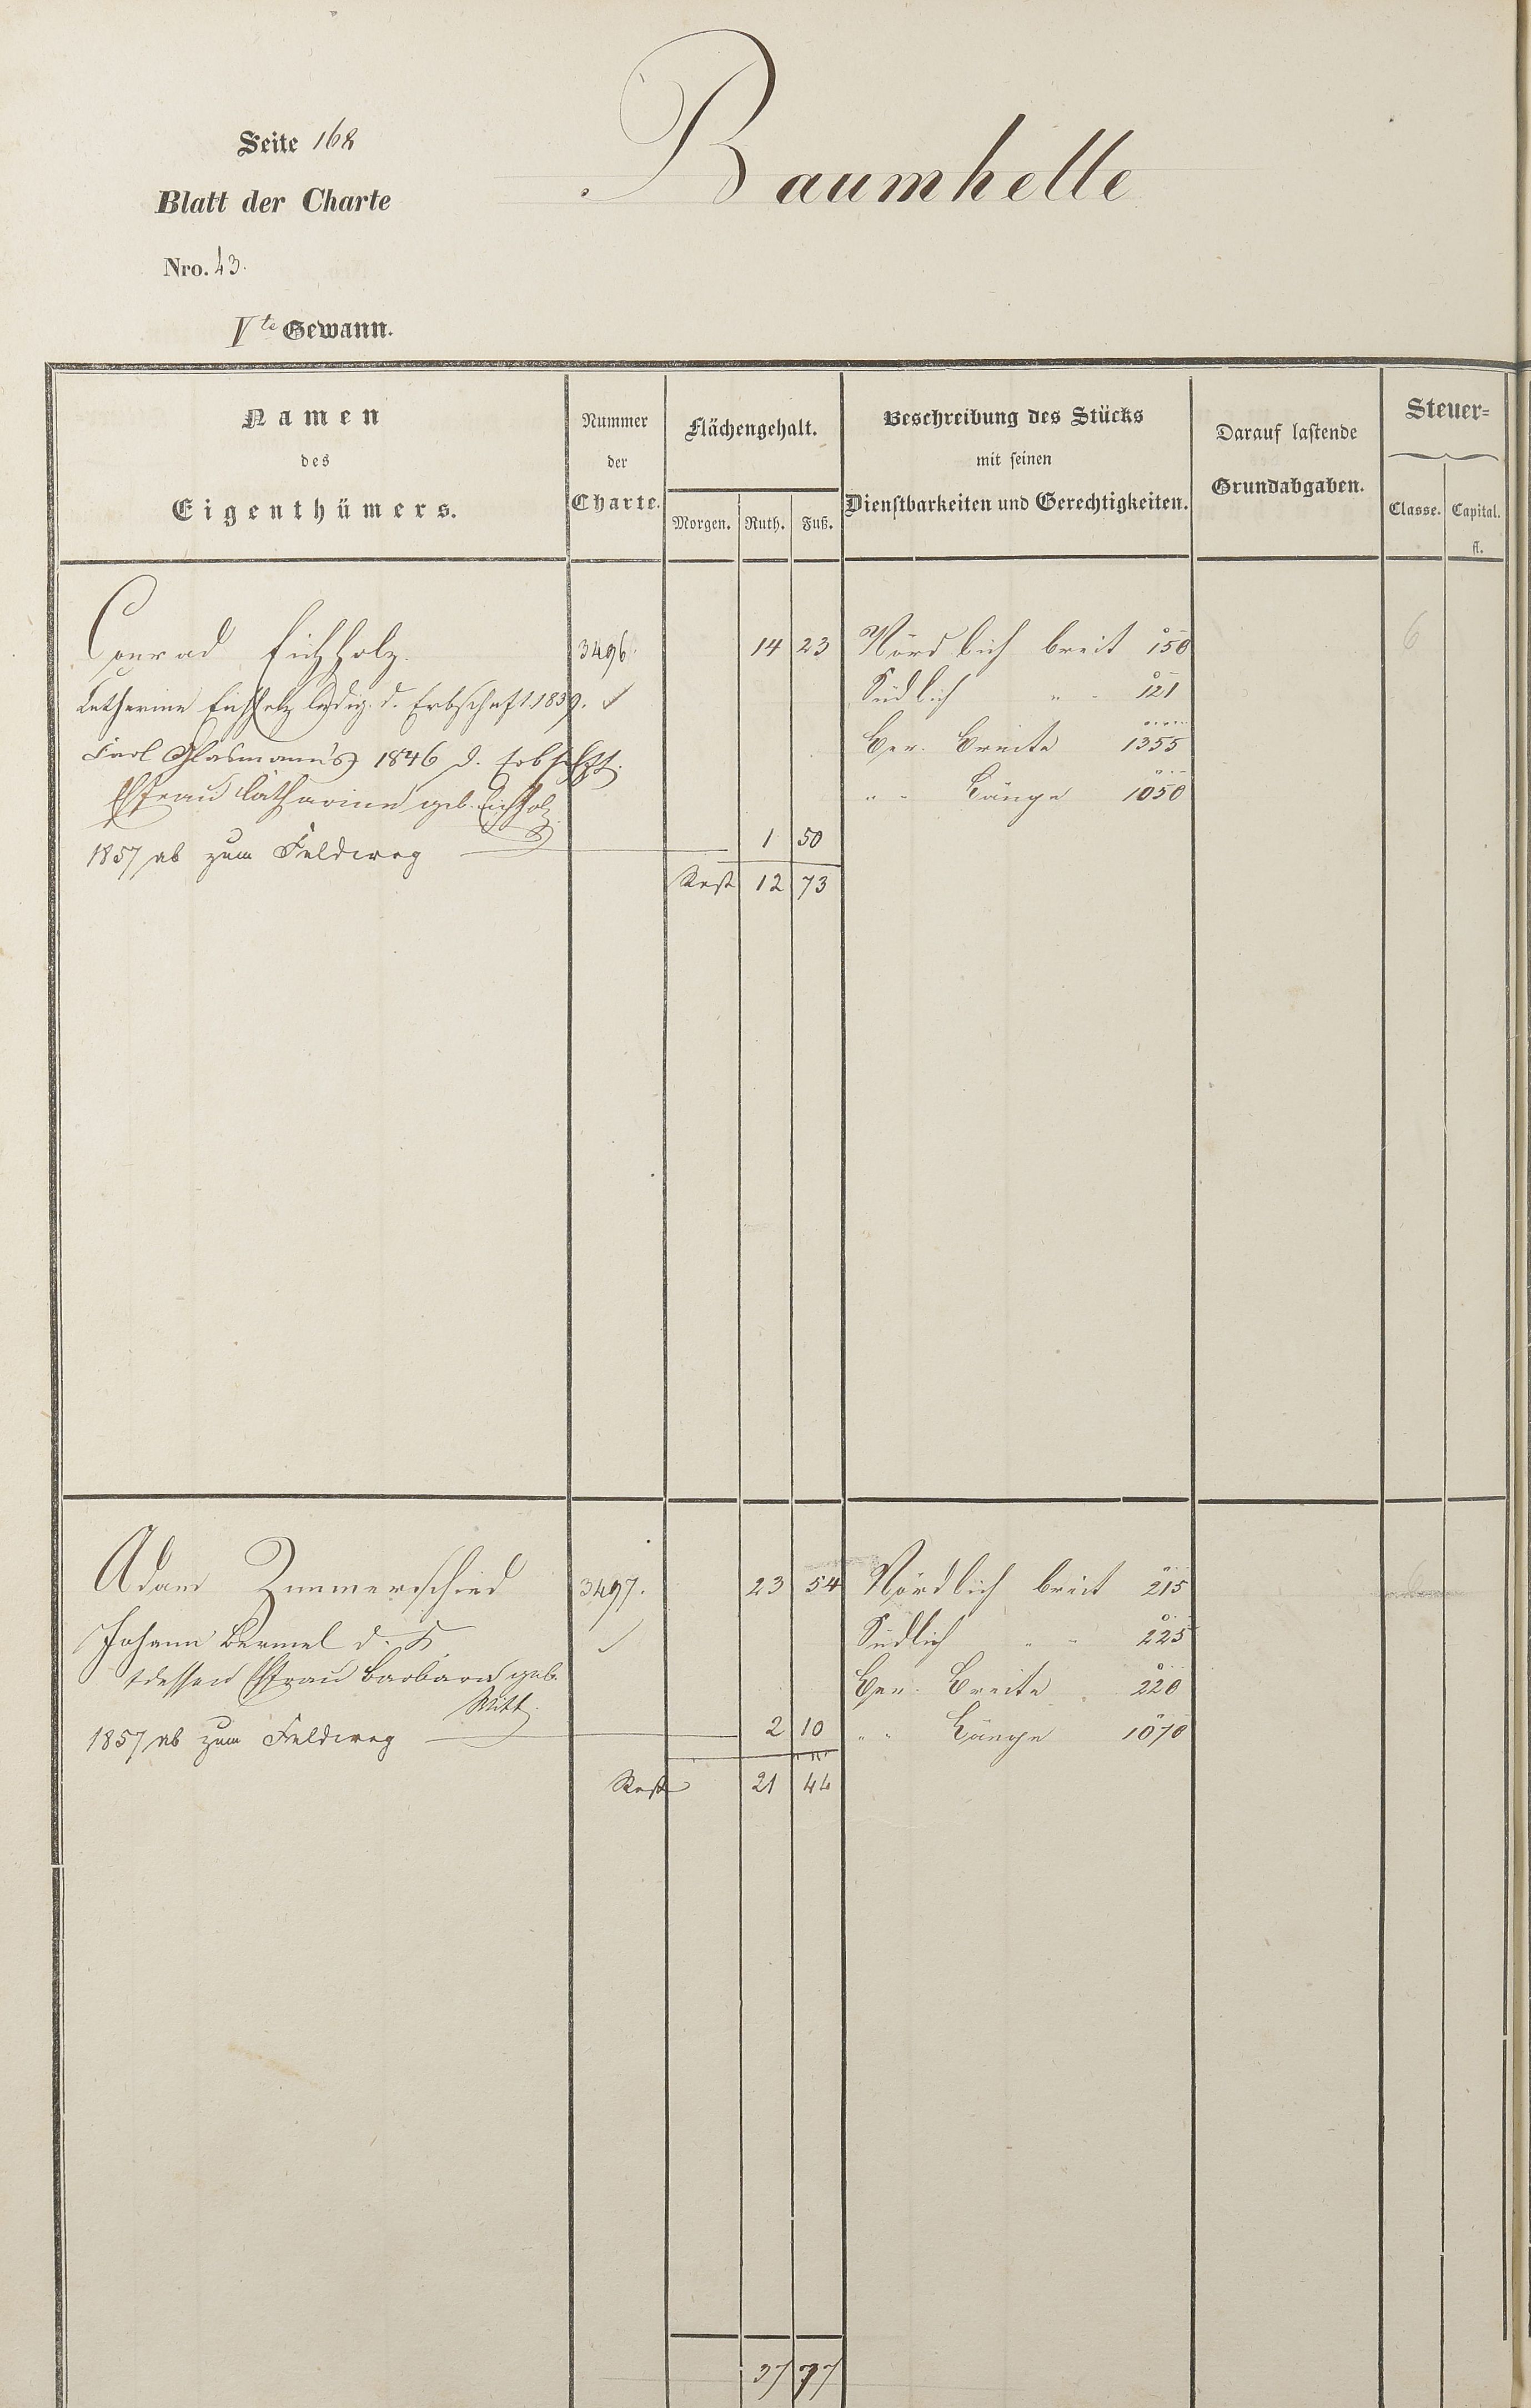 Seite 168
Baumhelle
Blatt der Charte
Nro. 43.
Vte Gewann.
Namen des Eigenthümers.
Nummer der Charte.
Flächengehalt.
Morgen. Ruth. Fuß.
Beschreibung des Stücks mit seinen Dienstbarkeiten und Gerechtigkeiten.
Darauf lastende Grundabgaben.
Steuer=
Classe. Capital. fl.
Conrad Eichholz. 3496. 14 23 Nördlich breit 150 6
Catherine Eichholz ledig. d. Erbschaft 1839. ✓ Südlich " - 121
Carl Glasmann's 1846 d. Erbschft. Ber. Breite 1355
Ehfrau Catharine geb. Eichholz " - Länge 1050
1857 ab zum Feldweg 1 50
Rest 12 73
Adam Zimmerschied 3497. 23 54 Nördlich breit 215 6
Johann Bermel d. K. ✓ Südlich " - 225
dessen Ehfrau Barbara geb. Ber. Breite 220
Witt.
1857 ab zum Feldweg 2 10 " - Länge 1070
Rest 21 44
37 77